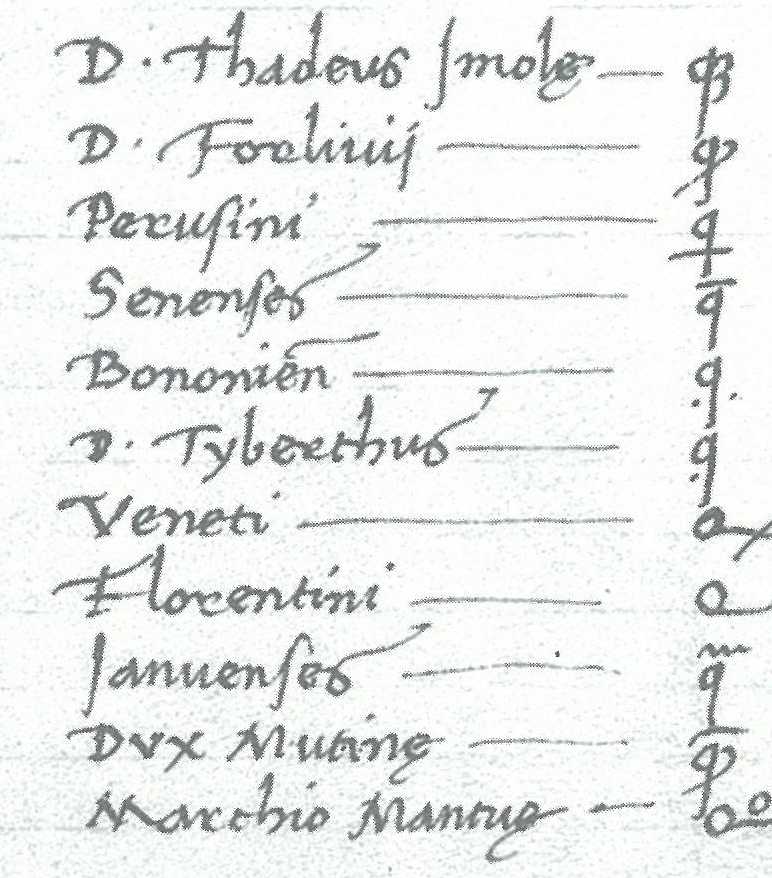 D. Thadeus Imolę
D. Forliuij
Perusini
Senenses
Bononien̄
D. Tyberthus
Veneti
Florentini
Januenses
Dvx Mutinę
Marchio Mantuę